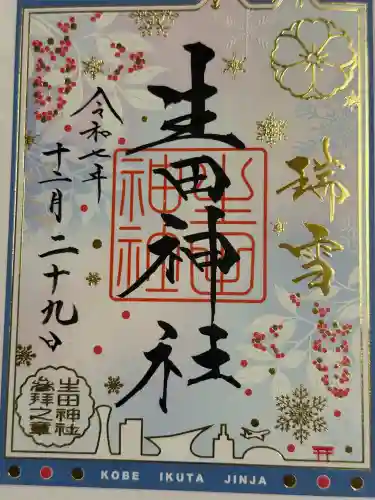 瑞雪
生田神社
生田神社
令和七年
十二月二十九日
生田神社
参拝之章
KOBE IKUTA JINJA